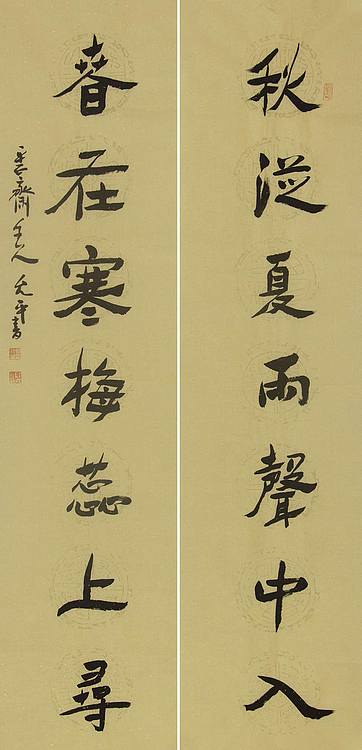 秋從夏雨聲中入
春在寒梅蕊上尋
齋主人
書